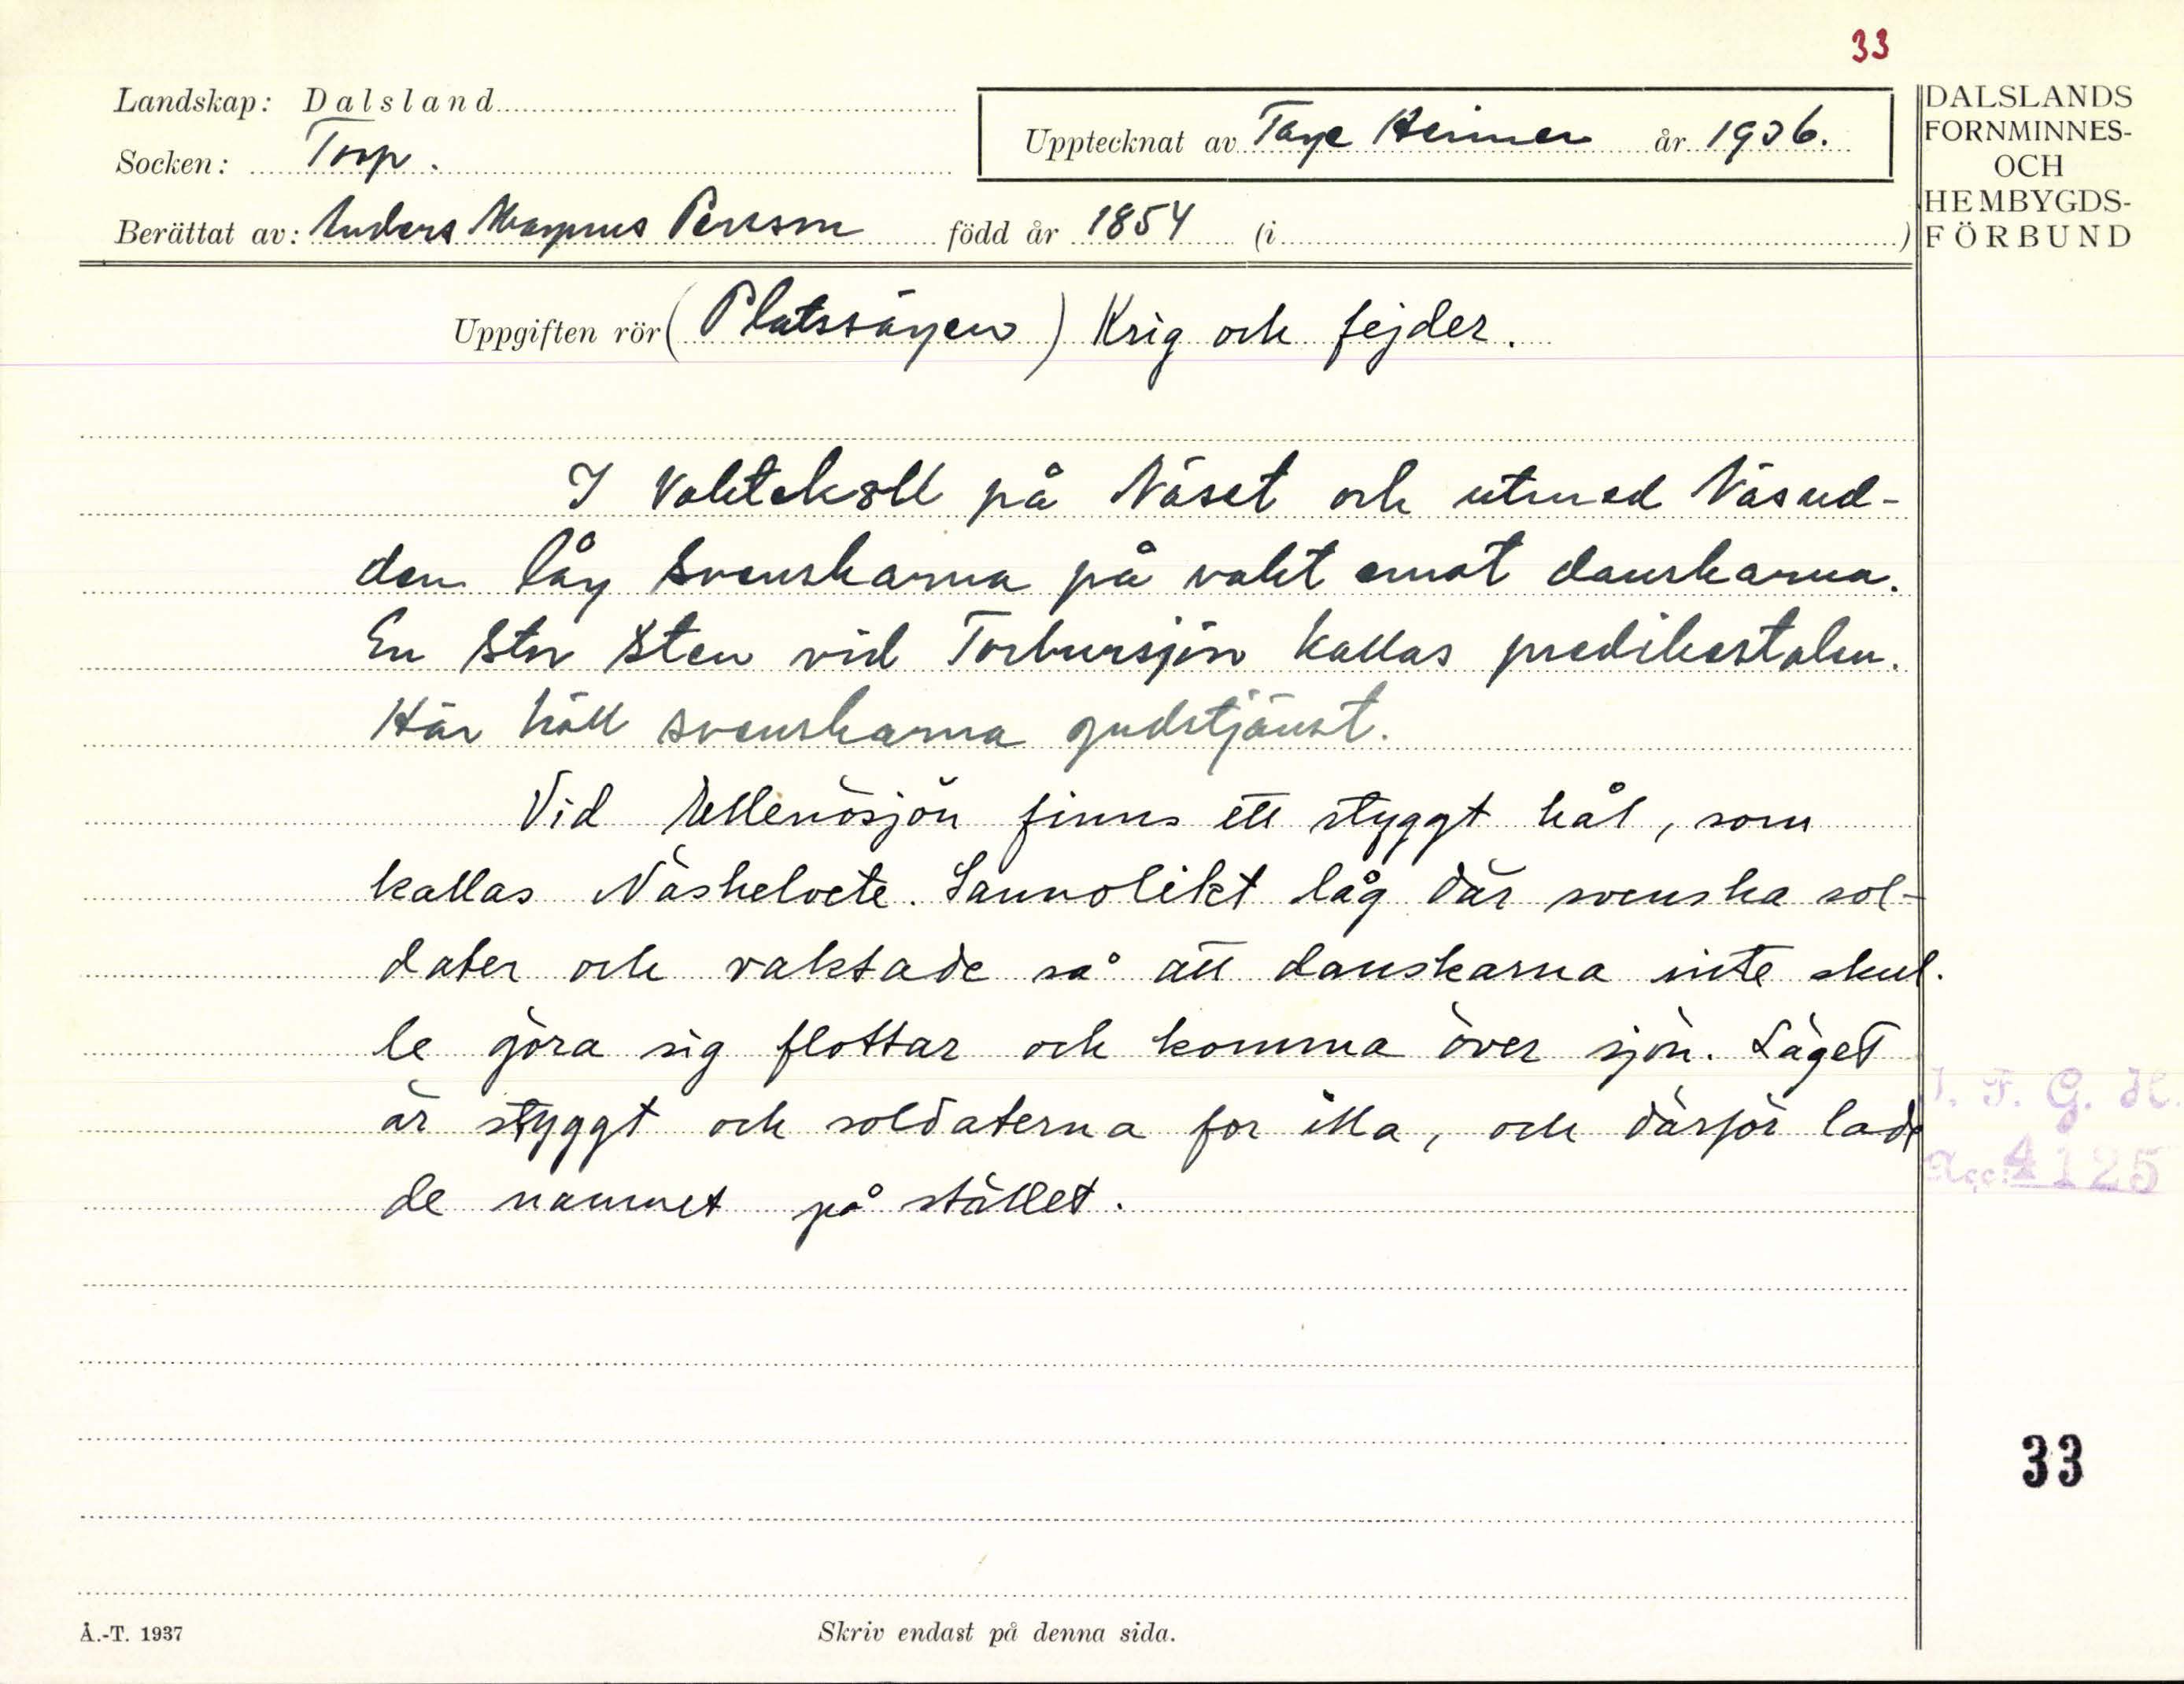 33
Landskap: Dalsland
Socken: Torp.
Upptecknat av Tage Heimer år 1936.
Berättat av: Anders Magnus Persson född år 1854 (i )
DALSLANDS
FORNMINNES-
OCH
HEMBYGDS-
FÖRBUND
Uppgiften rör (Platssägen) Krig och fejder.
I Vaktekoll på Näset och utmed Näsud-
den låg svenskarna på vakt emot danskarna.
En stor sten vid Torbursjön kallas predikestolen.
Här höll svenskarna gudstjänst.
Vid Ellenösjön finns ett styggt hål, som
kallas Näshelvete. Sannolikt låg där svenska sol-
dater och vaktade så att danskarna inte skul-
le göra sig flottar och komma över sjön. Läget
är styggt och soldaterna for illa, och därför lade
de namnet på stället.
I. F. G. H.
Acc. 4125
33
Å.-T. 1937
Skriv endast på denna sida.